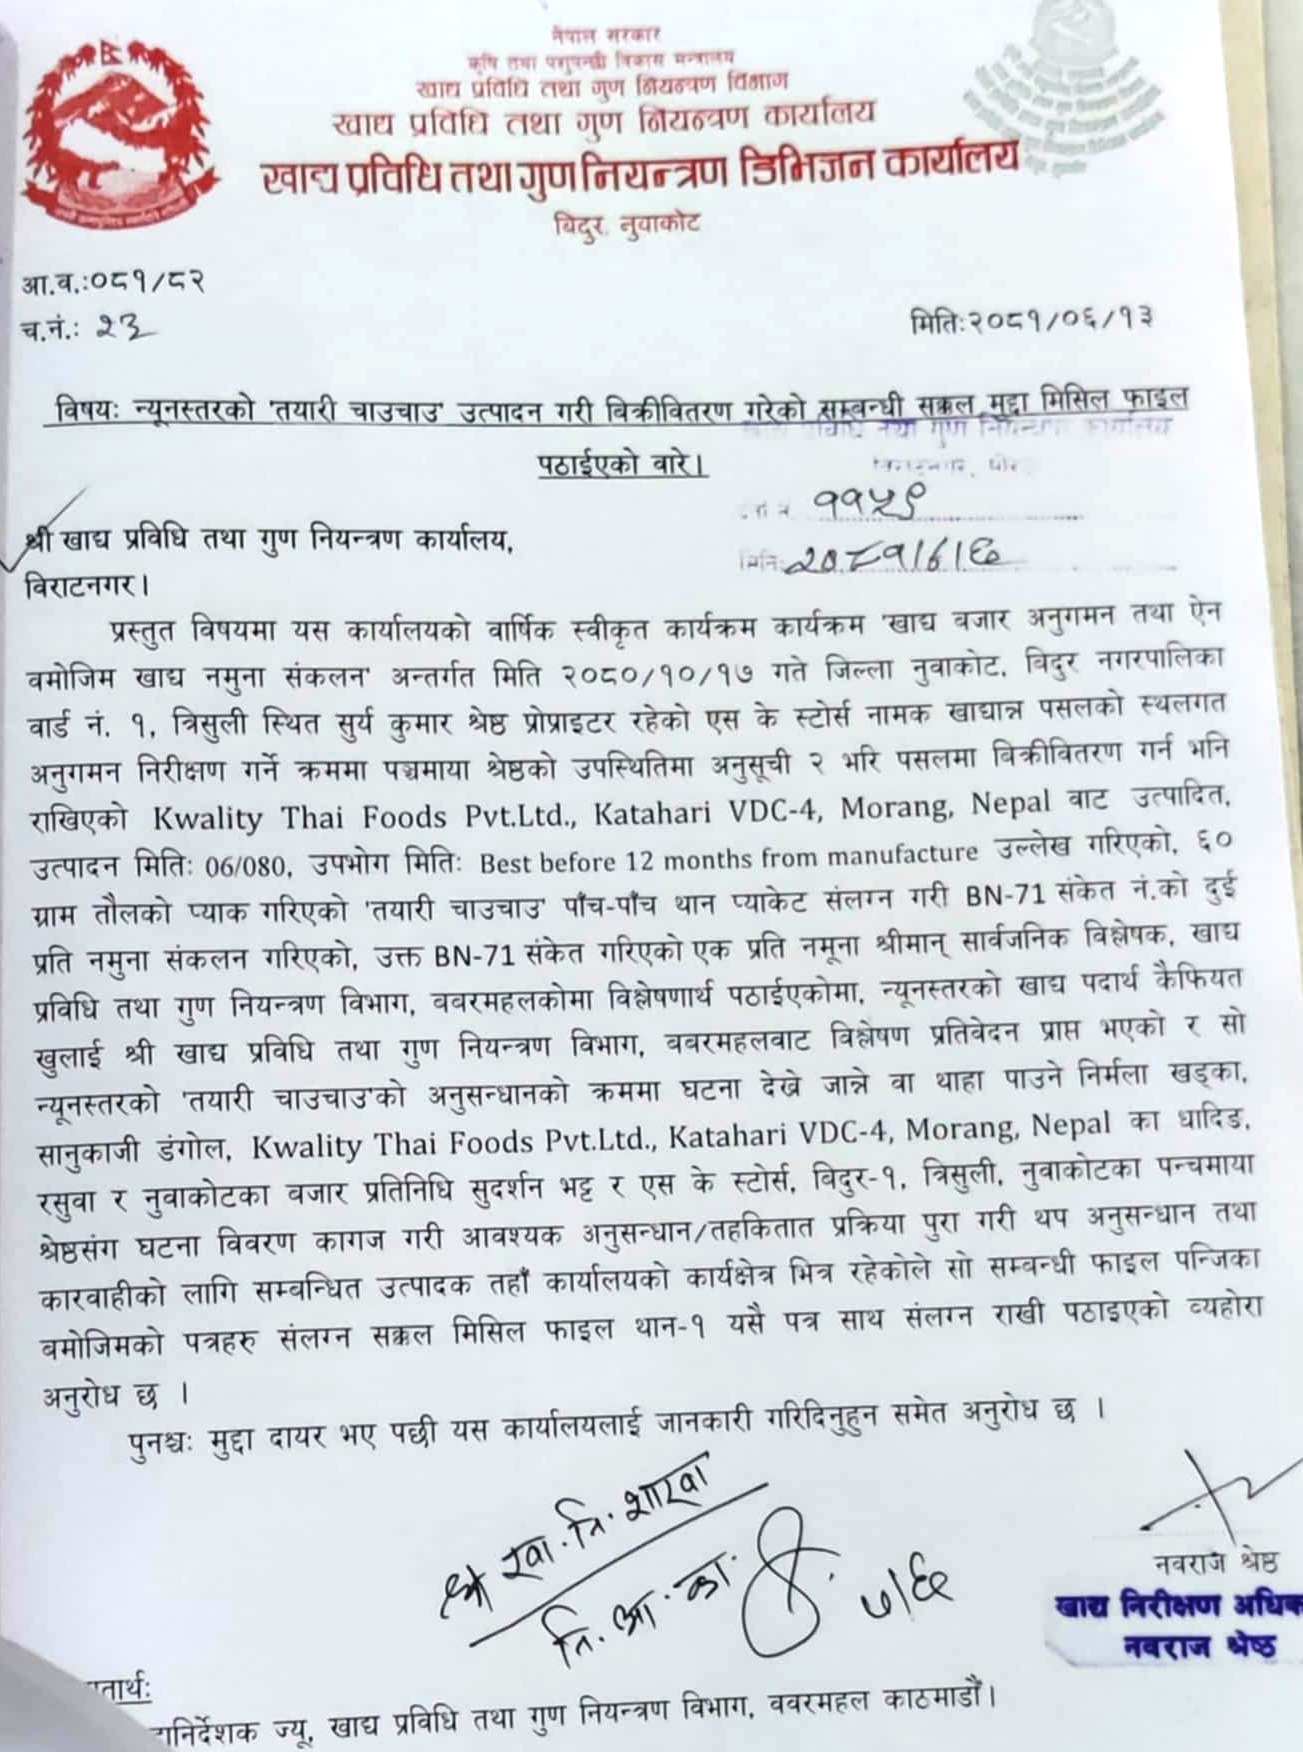 नेपाल सरकार
कृषि तथा पशुपन्छी विकास मन्त्रालय
खाद्य प्रविधि तथा गुण नियन्त्रण विभाग
खाद्य प्रविधि तथा गुण नियन्त्रण कार्यालय
खाद्य प्रविधि तथा गुण नियन्त्रण डिभिजन कार्यालय
बिदुर, नुवाकोट
आ.व.:०८१/८२
च.नं.: २३
मिति:२०८१/०६/१३
विषय: न्यूनस्तरको 'तयारी चाउचाउ' उत्पादन गरी बिक्रीवितरण गरेको सम्बन्धी सक्कल मुद्दा मिसिल फाइल
पठाईएको वारे।
प्रविधि तथा गुण नियन्त्रण कार्यालय
११५९
मिति: २०८१।६।१६
श्री खाद्य प्रविधि तथा गुण नियन्त्रण कार्यालय,
विराटनगर।
प्रस्तुत विषयमा यस कार्यालयको वार्षिक स्वीकृत कार्यक्रम कार्यक्रम 'खाद्य बजार अनुगमन तथा ऐन
बमोजिम खाद्य नमुना संकलन' अन्तर्गत मिति २०८०/१०/१७ गते जिल्ला नुवाकोट, विदुर नगरपालिका
वार्ड नं. १, त्रिसुली स्थित सुर्य कुमार श्रेष्ठ प्रोप्राइटर रहेको एस के स्टोर्स नामक खाद्यान्न पसलको स्थलगत
अनुगमन निरीक्षण गर्ने क्रममा पञ्चमाया श्रेष्ठको उपस्थितिमा अनुसूची २ भरि पसलमा बिक्रीवितरण गर्न भनि
राखिएको Kwality Thai Foods Pvt.Ltd., Katahari VDC-4, Morang, Nepal बाट उत्पादित,
उत्पादन मिति: 06/080, उपभोग मिति: Best before 12 months from manufacture उल्लेख गरिएको, ६०
ग्राम तौलको प्याक गरिएको 'तयारी चाउचाउ' पाँच-पाँच थान प्याकेट संलग्न गरी BN-71 संकेत नं.को दुई
प्रति नमुना संकलन गरिएको, उक्त BN-71 संकेत गरिएको एक प्रति नमूना श्रीमान् सार्वजनिक विश्लेषक, खाद्य
प्रविधि तथा गुण नियन्त्रण विभाग, बबरमहलकोमा विश्लेषणार्थ पठाईएकोमा, न्यूनस्तरको खाद्य पदार्थ कैफियत
खुलाई श्री खाद्य प्रविधि तथा गुण नियन्त्रण विभाग, बबरमहलवाट विश्लेषण प्रतिवेदन प्राप्त भएको र सो
न्यूनस्तरको 'तयारी चाउचाउ'को अनुसन्धानको क्रममा घटना देखे जान्ने वा थाहा पाउने निर्मला खड्का,
सानुकाजी डंगोल, Kwality Thai Foods Pvt.Ltd., Katahari VDC-4, Morang, Nepal का धादिङ,
रसुवा र नुवाकोटका बजार प्रतिनिधि सुदर्शन भट्ट र एस के स्टोर्स, बिदुर-१, त्रिसुली, नुवाकोटका पन्चमाया
श्रेष्ठसंग घटना विवरण कागज गरी आवश्यक अनुसन्धान/तहकितात प्रक्रिया पुरा गरी थप अनुसन्धान तथा
कारवाहीको लागि सम्बन्धित उत्पादक तहाँ कार्यालयको कार्यक्षेत्र भित्र रहेकोले सो सम्बन्धी फाइल पन्जिका
बमोजिमको पत्रहरु संलग्न सक्कल मिसिल फाइल थान-१ यसै पत्र साथ संलग्न राखी पठाइएको व्यहोरा
अनुरोध छ ।
पुनश्च: मुद्दा दायर भए पछी यस कार्यालयलाई जानकारी गरिदिनुहुन समेत अनुरोध छ ।
श्री खा. नि. शाखा
नि. आ. का.
७।६
नवराज श्रेष्ठ
खाद्य निरीक्षण अधिक
नवराज श्रेष्ठ
तार्थ:
निर्देशक ज्यू, खाद्य प्रविधि तथा गुण नियन्त्रण विभाग, बबरमहल काठमाडौँ।